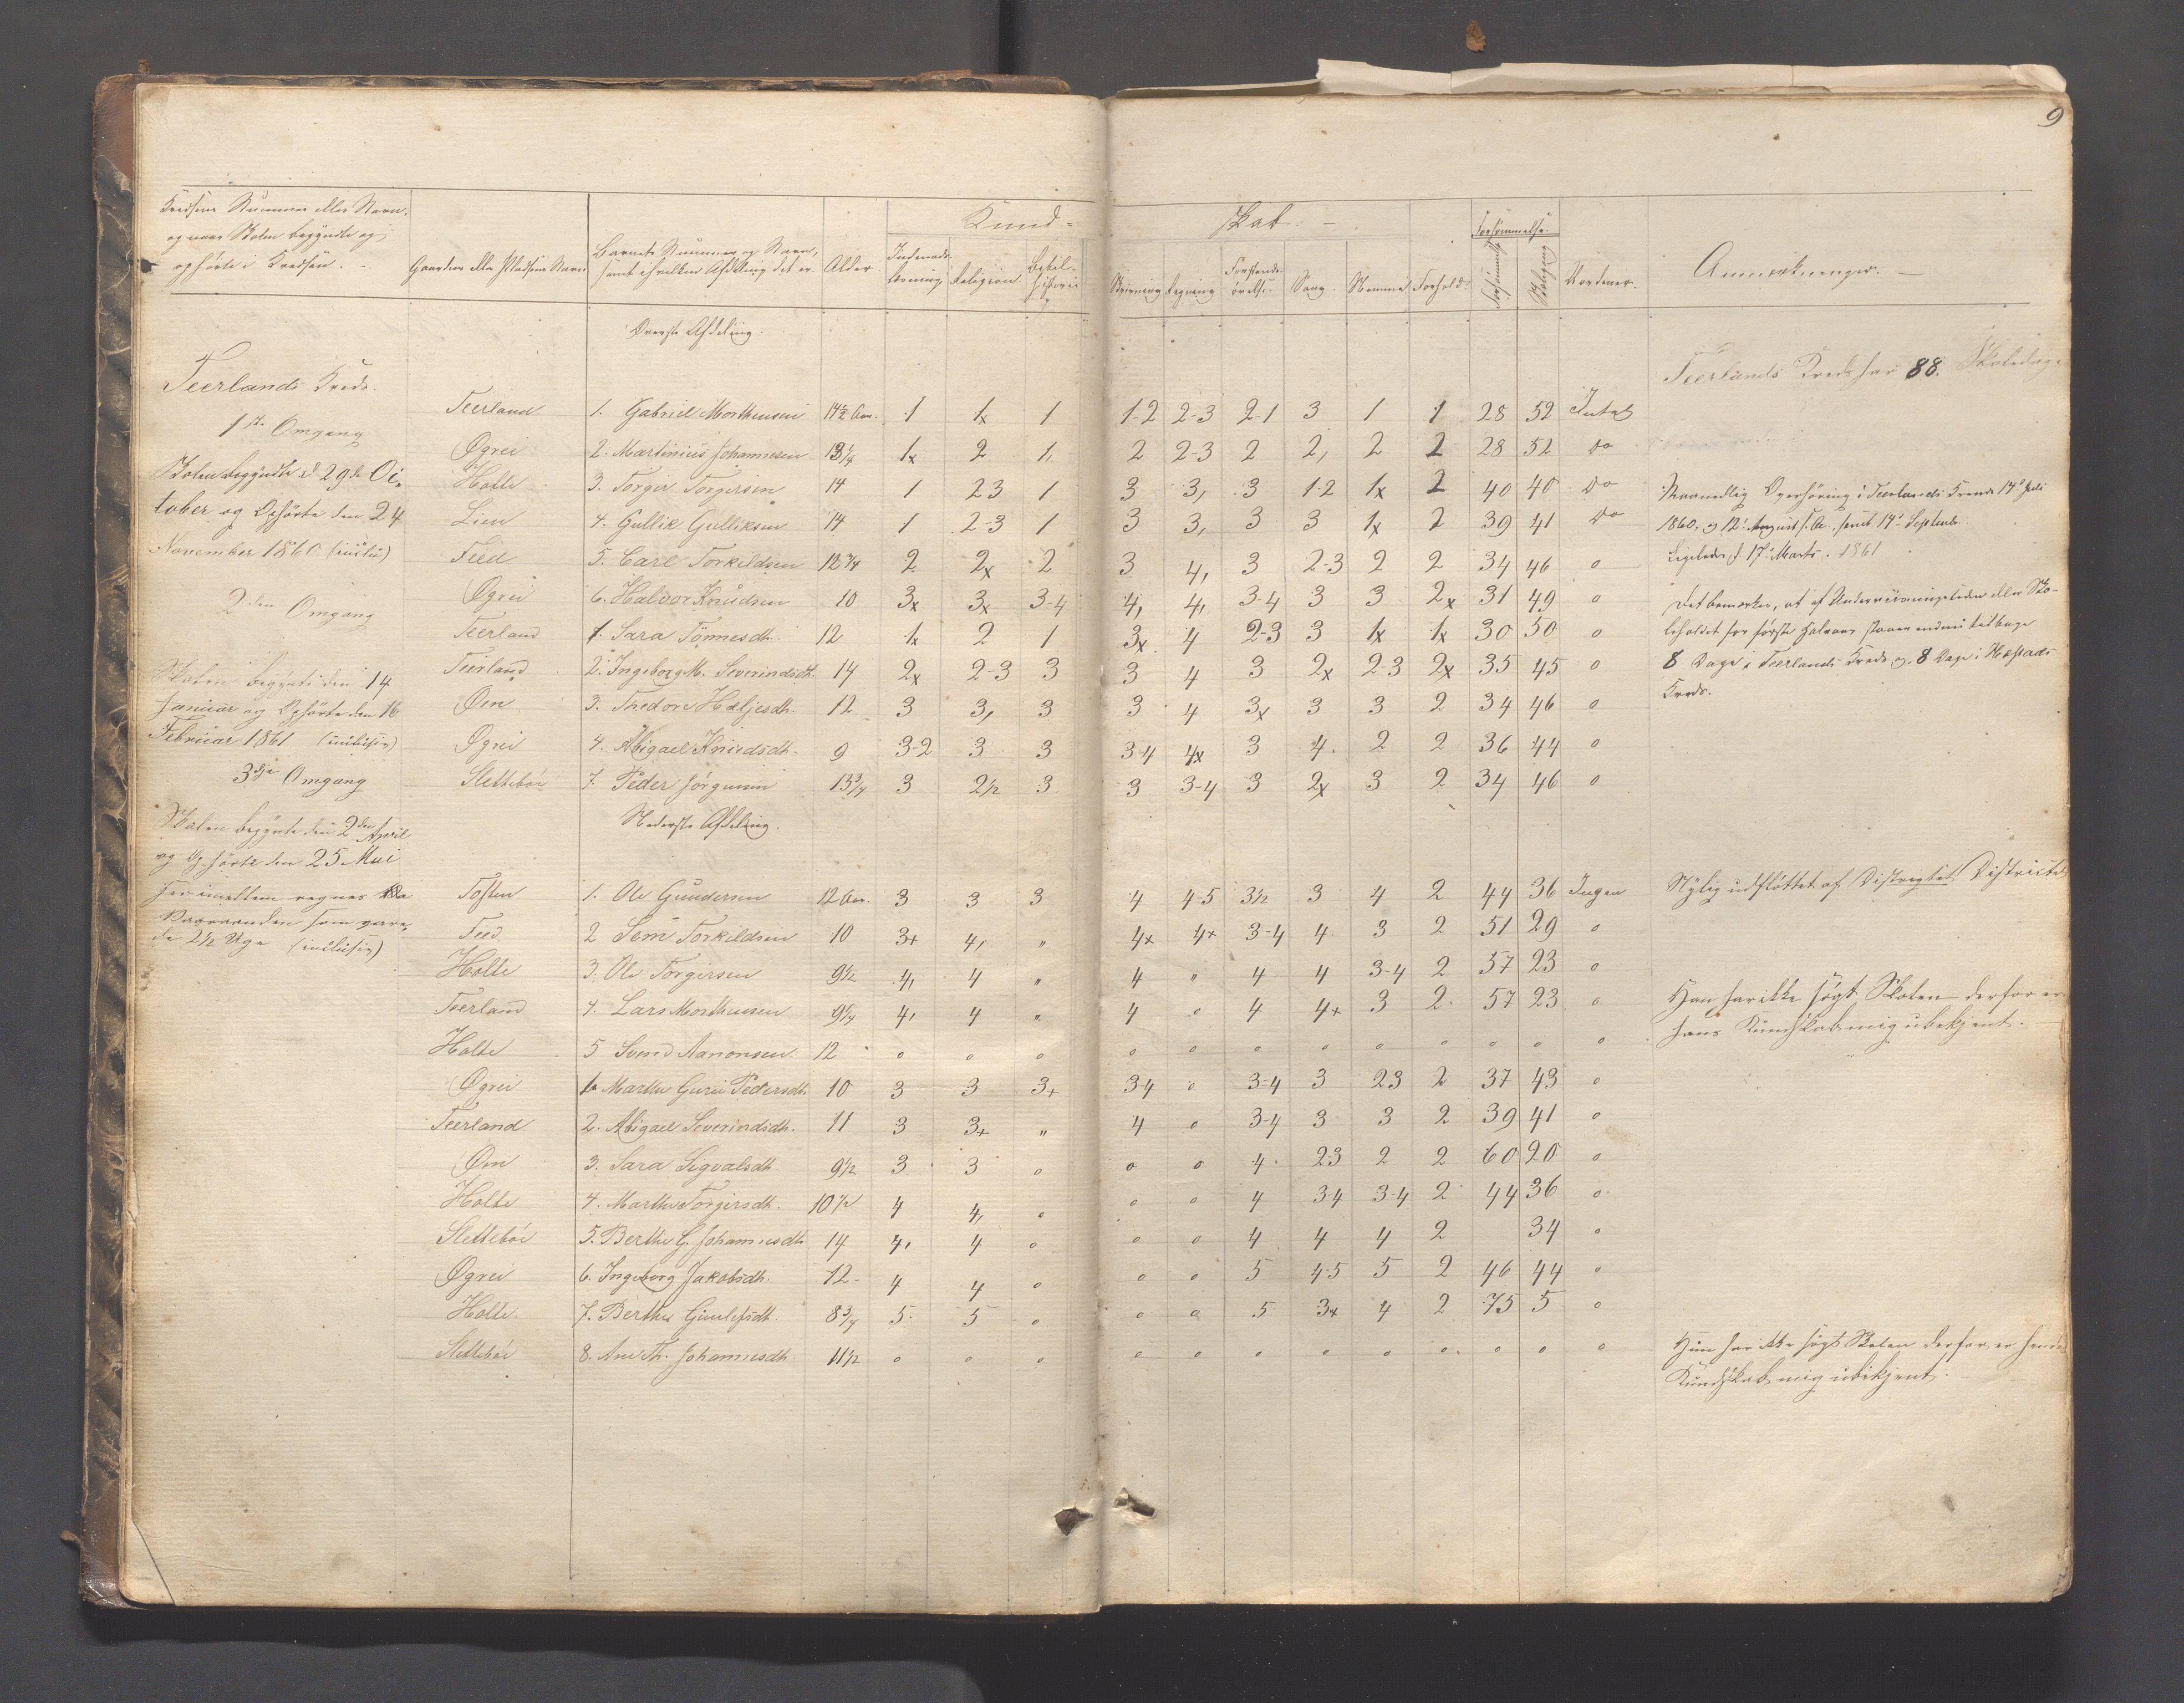 9
Kredsens Nummer eller Navn,
og naar Skolen begyndte og
ophörte i Kredsen.
Gaardens eller Pladsens Navn
Barnets Nummer og Navn,
samt i hvilken Afdeling det er
Alder
Kund-
skab.
Indenads-
læsning
Religion
Bibel-
historie
Skrivning
Regning
Forstands-
övelse
Sang
Stemme
Forhold
Forsömmelse
Skolegang
Anmærkninger.
Overste Afdeling.
Teerlands Kreds.
Teerlands Kreds har 88. Skoledage
1ste Omgang
Skolen begyndte d 29de Oc-
tober og Ophörte den 24
November 1860 (inclu)
2den Omgang
Skolen begynte den 14
Januar og Ophörte den 16
Februar 1861 (inclusiv)
3dje Omgang
Skolen begynte den 2den April
og Ophörte den 25 Mai
de 2 1/2 Uge (inclusiv)
Teerland 1. Gabriel Morthensen 14 1/2 Aar. 1 1x 1 1-2 2-3 2-1 3 1 1 28 52 Intet
Øgrei 2. Martinius Johannesen 13 1/4 1x 2 1, 2 2-3 2 2, 2 2 28 52 do
Holte 3. Torger Torgersen 14 1 23 1 3 3, 3 1-2 1x 2 40 40 do
Lien 4. Gullik Gulliksen 14 1 2-3 1 3 3, 3 3 1x 2 39 41 do
Feed 5. Carl Torkildsen 12 3/4 2 2x 2 3 4, 3 2-3 2 2 34 46 o
Øgrei 6. Halvor Knudsen 10 3x 3x 3-4 4, 4, 3-4 3 3 2x 31 49 o
Teerland 1. Sara Tönnesdh. 12 1x 2 1 3x 4 2-3 3 1x 1x 30 50 o
Teerland 2. Ingeborg M. Severindsdh. 14 2x 2-3 3 3 4 3 2x 2-3 2x 35 45 o
Øen 3. Thedore Hæljesdh. 12 3 3, 3 3 4 3x 3 3 2 34 46 o
Øgrei 4. Abigael Knudsdh. 9 3-2 3 3 3-4 4x 3 4. 2 2 36 44 o
Sletteböe 7. Peder Jörgensen 13 3/4 3 2 1/2 3 3 3-4 3 2x 3 2 34 46 o
Maanedlig Overhöring i Teerlands Kreds 14de Juli
1860, og 12te August s. A., samt 14de Septemb.
Ligeledes d. 17de Marts. 1861
Det bemærkes, at af Underviisningstiden eller Sko-
leholdet for förste Halvaar staaer endnu tilbage
8 Dage i Teerlands Kreds og 8 Dage i Hæstads
Kreds.
Nederste Afdeling.
Toften 1. Ole Gundersen 12 Aar. 3 3 3 4 4-5 3 1/2 3 4 2 44 36 Ingen
Nylig udflöttet af Distregtet Districtet
Feed 2 Sem Torkildsen 10 3+ 4, " 4x 4x 3-4 4 3 2 51 29 o
Holte 3. Ole Torgersen 9 1/2 4, 4 " 4 " 4 4 3-4 2 57 23 o
Teerland 4. Lars Morthensen 9 1/4 4, 4 " 4 o 4 4+ 3 2 57 23 o
Holte 5 Svend Aanonsen 12 o o o o o o o o o o o o
Han har ikke sögt Skolen derfor er
hans Kundskab mig ubekjent.
Øgrei 1. Marthe Gurie Pedersdh. 10 3 3 3+ 34 o 3-4 3 23 2 37 43 o
Teerland 2. Abigael Severindsdh. 11 3 3+ " 4 o 3-4 3 3 2 39 41 o
Øen 3. Sara Sigvalsdh. 9 1/2 3 3 o o o 4 23 2 2 60 20 o
Holte 4. Marthe Torgersdh. 10 1/2 4 4, o o o 4 34 3-4 2 44 36 o
Sletteböe 5. Berthe G. Johannesdh. 14 4, 4 o o o 4 4 4 2 34 o
Øgrei 6. Ingeborg Jakobsdh. 12 4 4 o o o 5 4-5 5 2 46 44 o
Holte 7. Berthe Gunlefsdh. 8 3/4 5 5 o o o 5 3x 4 2 75 5 o
Sletteböe 8. Ane Th. Johannesdh. 11 1/2 o o o o o o o o o o o o
Hun har ikke sögt Skolen derfor er hendes
Kundskab mig ubekjent.